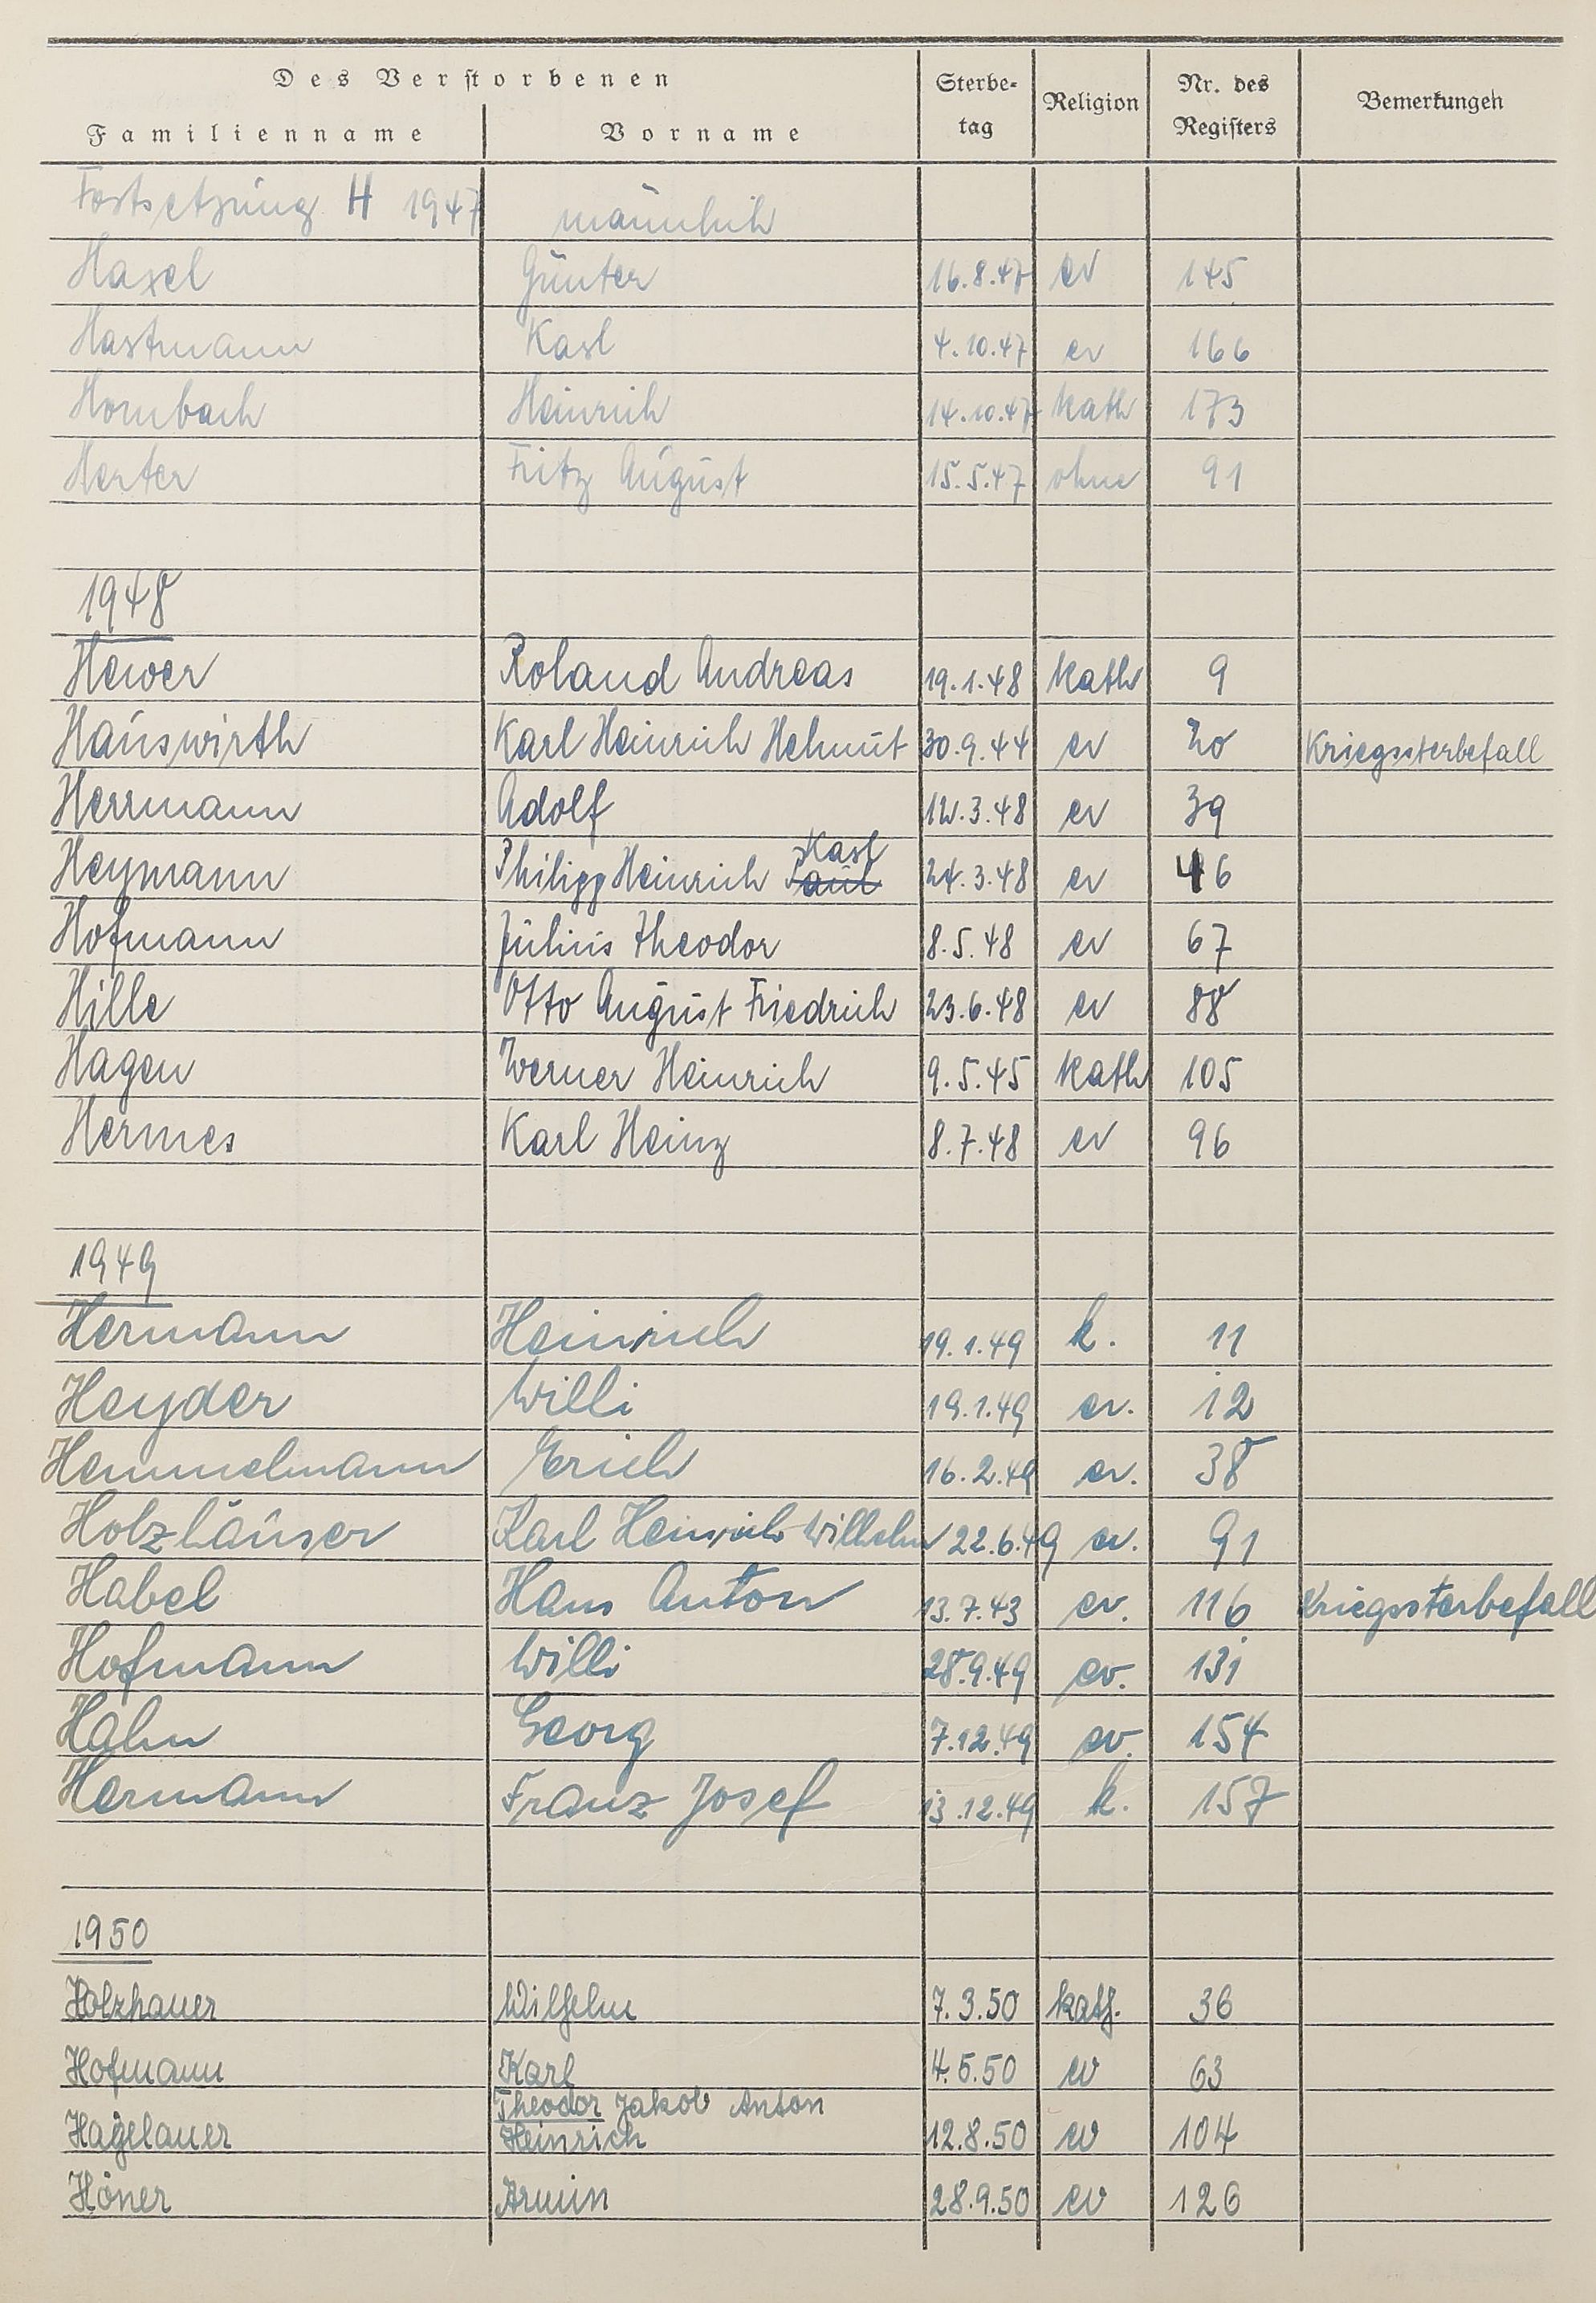 Des Verstorbenen
Familienname Vorname Sterbe-tag Religion Nr. des Registers Bemerkungen
Fortsetzung H 1947 männlich
Haxel Günter 16.8.47 ev 145
Hartmann Karl 4.10.47 ev 166
Hornbach Heinrich 14.10.47 kath 173
Herter Fritz August 15.5.47 ohne 91
1948
Hewer Roland Andreas 19.1.48 kath 9
Hauswirth Karl Heinrich Helmut 30.9.44 ev 20 Kriegssterbefall
Herrmann Adolf 12.3.48 ev 39
Karl
Heymann Philipp Heinrich Paul 24.3.48 ev 46
Hofmann Julius Theodor 8.5.48 ev 67
Hille Otto August Friedrich 23.6.48 ev 88
Hagen Werner Heinrich 9.5.45 kath 105
Hermes Karl Heinz 8.7.48 ev 96
1949
Hermann Heinrich 19.1.49 k. 11
Heyder Willi 19.1.49 ev. 12
Hemmelmann Erich 16.2.49 ev. 38
Holzhäuser Karl Heinrich Wilhelm 22.6.49 ev. 91
Habel Hans Anton 13.7.43 ev. 116 Kriegssterbefall
Hofmann Willi 28.9.49 ev. 131
Hahn Georg 7.12.49 ev. 154
Hermann Franz Josef 13.12.49 k. 157
1950
Holzhauer Wilhelm 7.3.50 kath. 36
Hofmann Karl 4.5.50 ev 63
Theodor Jakob Anton
Hagelauer Heinrich 12.8.50 ev 104
Höner Armin 28.9.50 ev 126